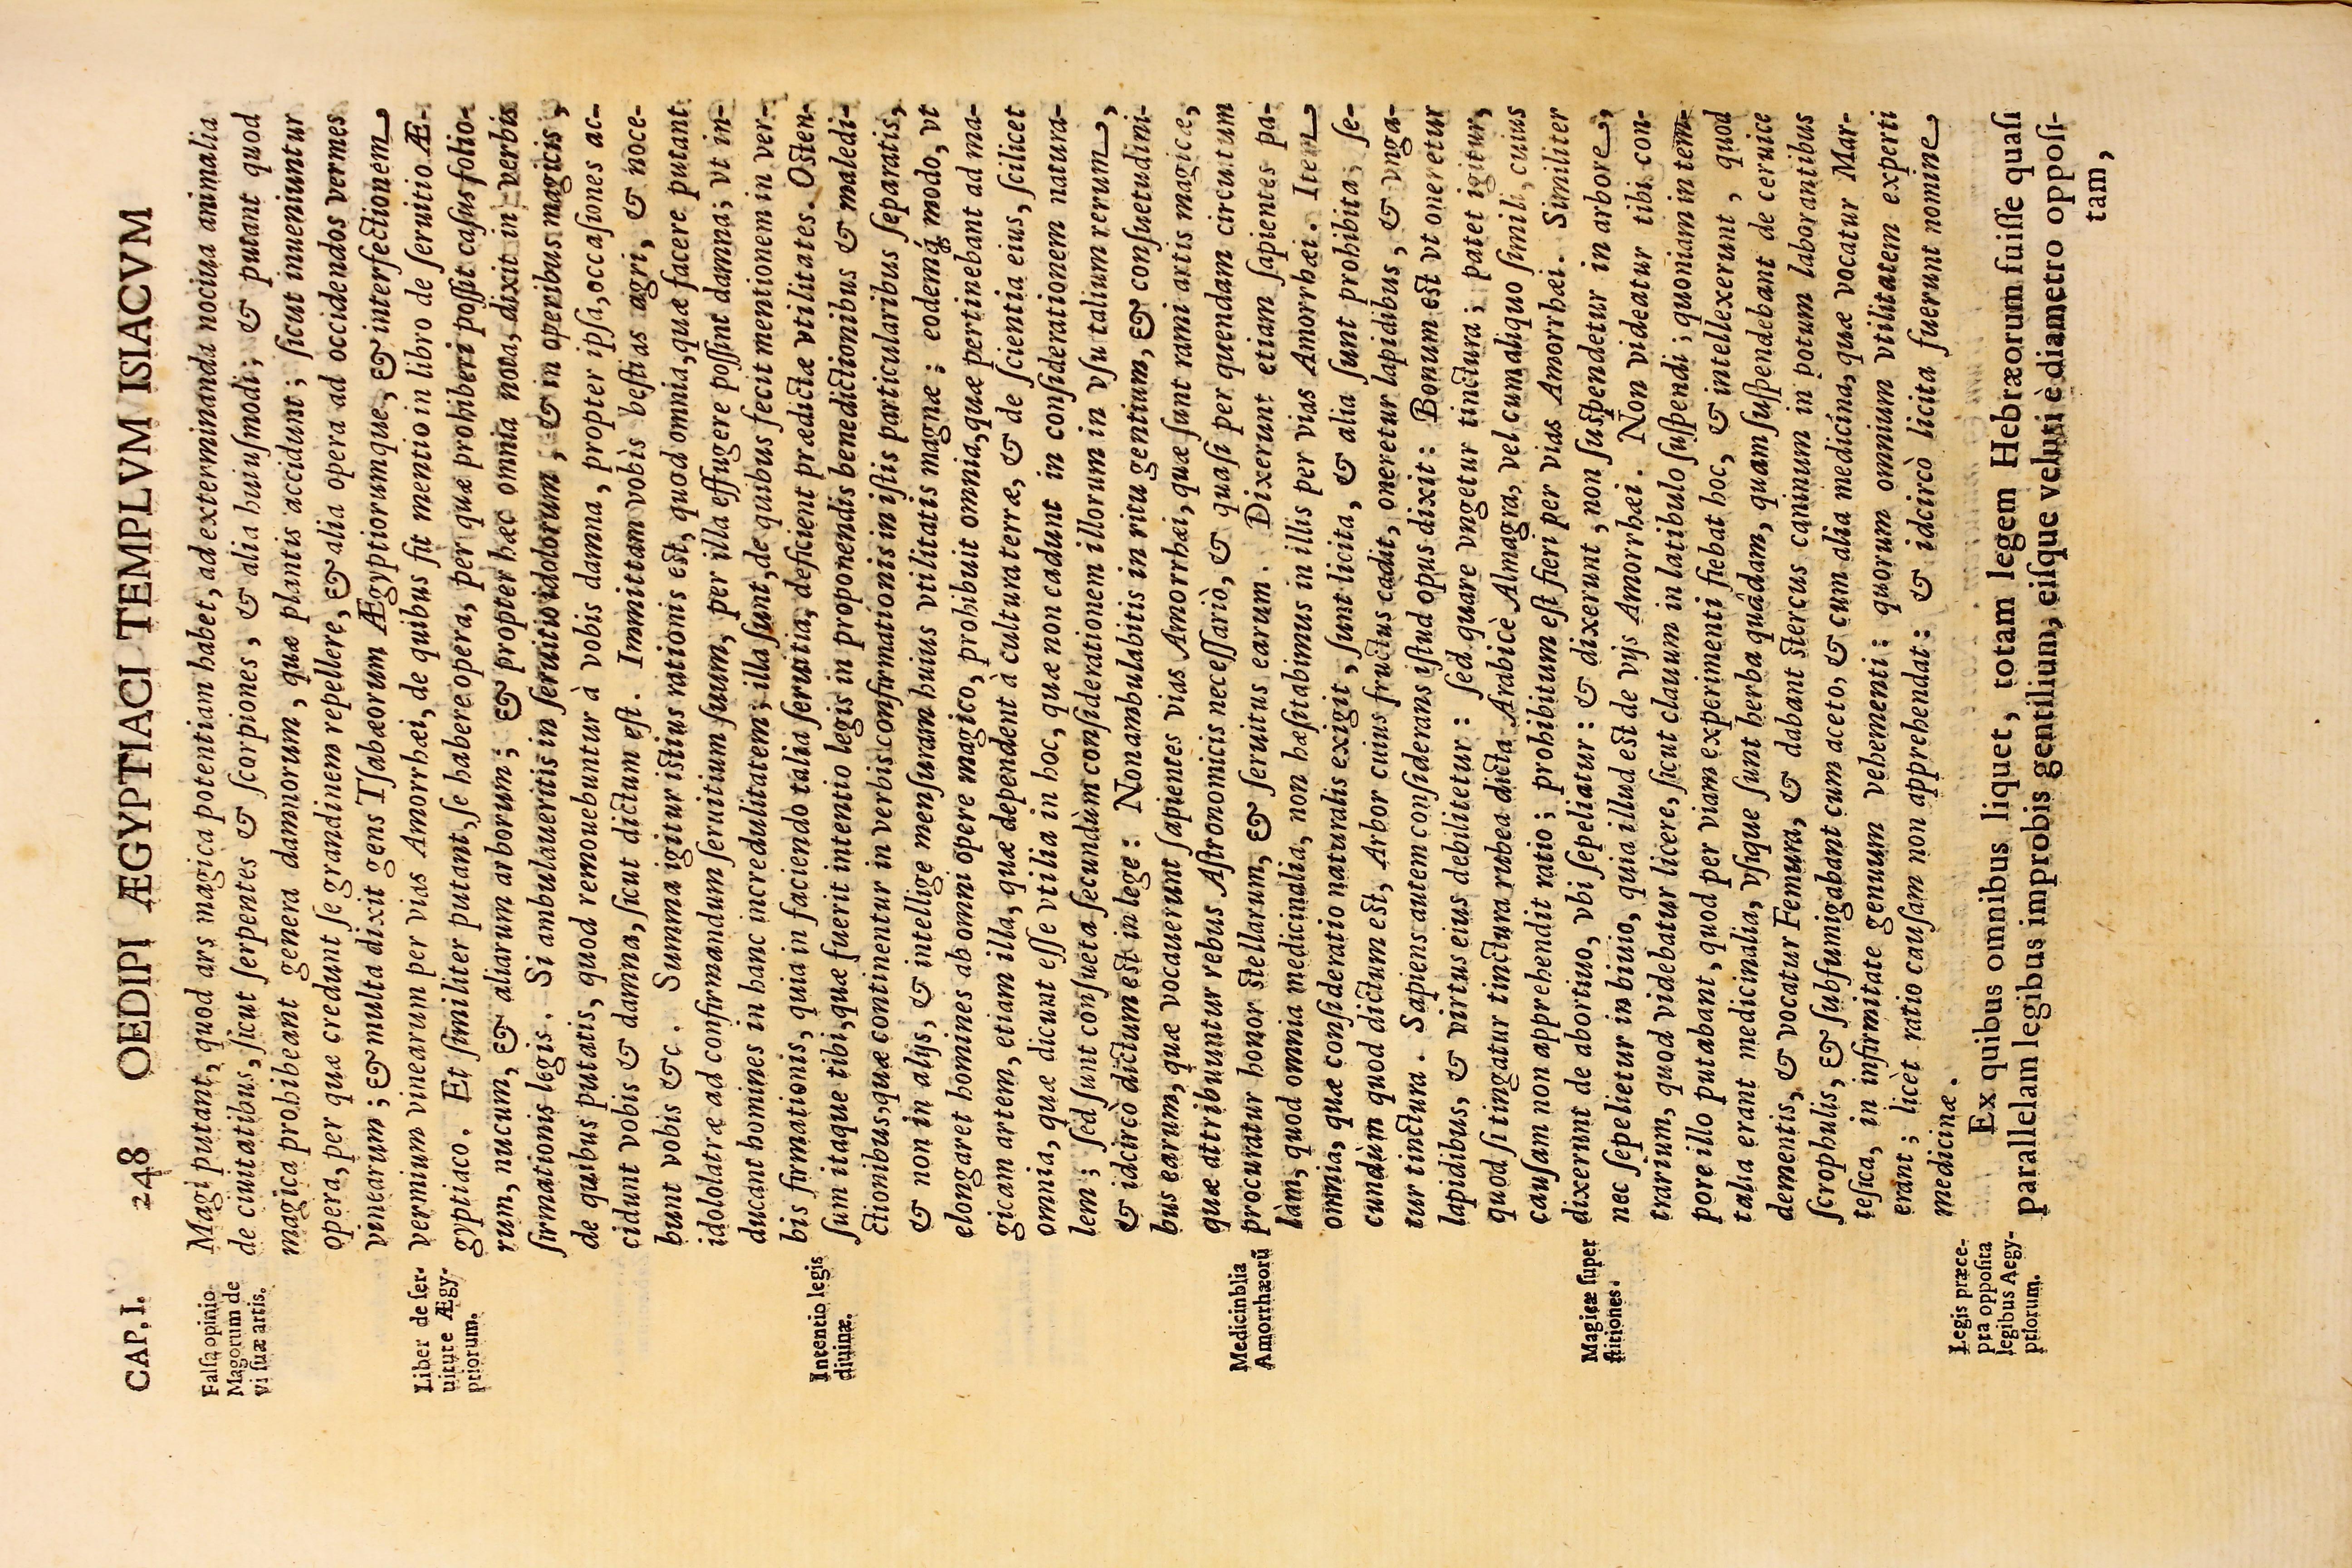 CAP. I. 248 OEDIPI ÆGYPTIACI TEMPLVM ISIACVM
Falſa opinio
Magorum de
vi ſuæ artis.
Magi putant, quod ars magica potentiam habet, ad exterminanda nociua animalia
de ciuitatibus, ſicut ſerpentes & ſcorpiones, & alia huiuſmodi; & putant quod
magica prohibeant genera damnorum, quæ plantis accidunt; ſicut inueniuntur
opera, per quæ credunt ſe grandinem repellere, & alia opera ad occidendos vermes
vinearum; & multa dixit gens Tſabæorum Ægyptiorumque, & interfectionem
Liber de ſer-
uitute Ægy-
ptiorum.
vermium vinearum per vias Amorrhæi, de quibus fit mentio in libro de ſeruitio Æ-
gyptiaco. Et ſimiliter putant, ſe habere opera, per quæ prohiberi poſſit caſus folio-
rum, nucum, & aliarum arborum; & propter hæc omnia nota, dixit in verbis
firmationis legis. Si ambulaueritis in ſeruitio idolorum, & in operibus magicis,
de quibus putatis, quod remouebuntur à vobis damna, propter ipſa, occaſiones ac-
cidunt vobis & damna, ſicut dictum eſt. Immittam vobis beſtias agri, & noce-
bunt vobis &c. Summa igitur iſtius rationis eſt, quod omnia, quæ facere putant
idololatræ ad confirmandum ſeruitium ſuum, per illa effugere poſſint damna; vt in-
ducant homines in hanc incredulitatem; illa ſunt, de quibus fecit mentionem in ver-
Intentio legis
diuinæ.
bis firmationis, quia in faciendo talia ſeruitia, deficient prædictæ vtilitates. Oſten-
ſum itaque tibi, quæ fuerit intentio legis in proponendis benedictionibus & maledi-
ctionibus, quæ continentur in verbis confirmationis in iſtis particularibus ſeparatis,
& non in alijs, & intellige menſuram huius vtilitatis magnæ: eodemq́ modo, vt
elongaret homines ab omni opere magico, prohibuit omnia, quæ pertinebant ad ma-
gicam artem, etiam illa, quæ dependent à cultura terræ, & de ſcientia eius, ſcilicet
omnia, quæ dicunt eſſe vtilia in hoc, quæ non cadunt in conſiderationem natura-
lem; ſed ſunt conſueta ſecundùm conſiderationem illorum in vſu talium rerum,
& idcircò dictum eſt in lege: Non ambulabitis in ritu gentium, & conſuetudini-
bus earum, quæ vocauerunt ſapientes vias Amorrhæi, quæ ſunt rami artis magicæ,
quæ attribuuntur rebus Aſtronomicis neceſſariò, & quaſi per quendam circutum
Medicinblia
Amorrhæorũ
procuratur honor ſtellarum, & ſeruitus earum. Dixerunt etiam ſapientes pa-
làm, quod omnia medicinalia, non hæſitabimus in illis per vias Amorrhæi. Item
omnia, quæ conſideratio naturalis exigit, ſunt licita, & alia ſunt prohibita; ſe-
cundùm quod dictum eſt, Arbor cuius fructus cadit, oneretur lapidibus, & vnga-
tur tinctura. Sapiens autem conſiderans iſtud opus dixit: Bonum eſt vt oneretur
lapidibus, & virtus eius debilitetur: ſed quare vngetur tinctura; patet igitur,
quod ſi tingatur tinctura rubea dicta Arabicè Almagra, vel cum aliquo ſimili, cuius
cauſam non apprehendit ratio; prohibitum eſt fieri per vias Amorrhæi. Similiter
Magicæ ſuper
ſtitiones.
dixerunt de abortiuo, vbi ſepeliatur: & dixerunt, non ſuſpendetur in arbore,
nec ſepelietur in biuio, quia illud eſt de vijs Amorrhæi. Non videatur tibi con-
trarium, quod videbatur licere, ſicut clauum in latibulo ſuſpendi; quoniam in tem-
pore illo putabant, quod per viam experimenti fiebat hoc, & intellexerunt, quod
talia erant medicinalia, vſique ſunt herba quâdam, quam ſuſpendebant de ceruice
dementis, & vocatur Femura, & dabant ſtercus caninum in potum laborantibus
ſcrophulis, & ſubfumigabant cum aceto, & cum alia medicina, quæ vocatur Mar-
teſica, in infirmitate genuum vehementi: quorum omnium vtilitatem experti
erant; licèt ratio cauſam non apprehendat: & idcircò licita fuerunt nomine
medicinæ.
Legis præce-
pta oppoſita
legibus Aegy-
ptiorum.
Ex quibus omnibus liquet, totam legem Hebræorum fuiſſe quaſi
parallelam legibus improbis gentilium, eiſque veluti è diametro oppoſi-
tam,